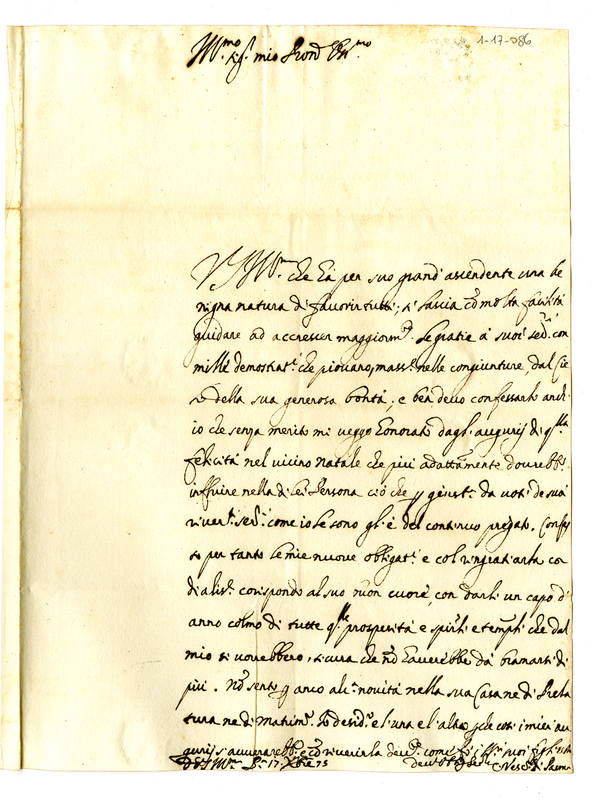 1-17-086
Ill.mo Sig. mio Pron Col.mo
V.S. Ill.ma che há per suo grand'ascendente una be
nigna natura di favorir tutti; si lascia cõ molta facilità
guidare ad accrescer maggiorm.te le gratie a suoi ser.ri con
mille demostrat.i che piovano, mass.e nelle congiunture, dal Cie
lo della sua generosa bontá; e ben devo confessarlo anch'
io che senza merito mi veggo honorato dagl'augurij di q.lla
felicitá nel vicino natale che piú adattamente dovrebbe
influire nella di lei Persona ció che giust.e da voti de suoi
river.ti ser.ri come io le sono gl'é del continuo pregato. Confes
so per tanto le mie nuove obligat.i e col ringratiarla cor
dialiss.e corispondo al suo buon cuore, con darli un capo d'
anno colmo di tutte q.lle prosperitá e spirti e tempi che dal
mio si vorebbero, sicura che nõ haverebbe da bramarsi di
piú. Nõ sento p anco alc.a novità nella sua Casa ne di Prela
tura ne di matrim.o Io desid.o e l'una e l'altro, che cosi i miei au
gurij s'avverarebb.o e cõ riverirla
D V S Ill.ma 17 Xbre 75